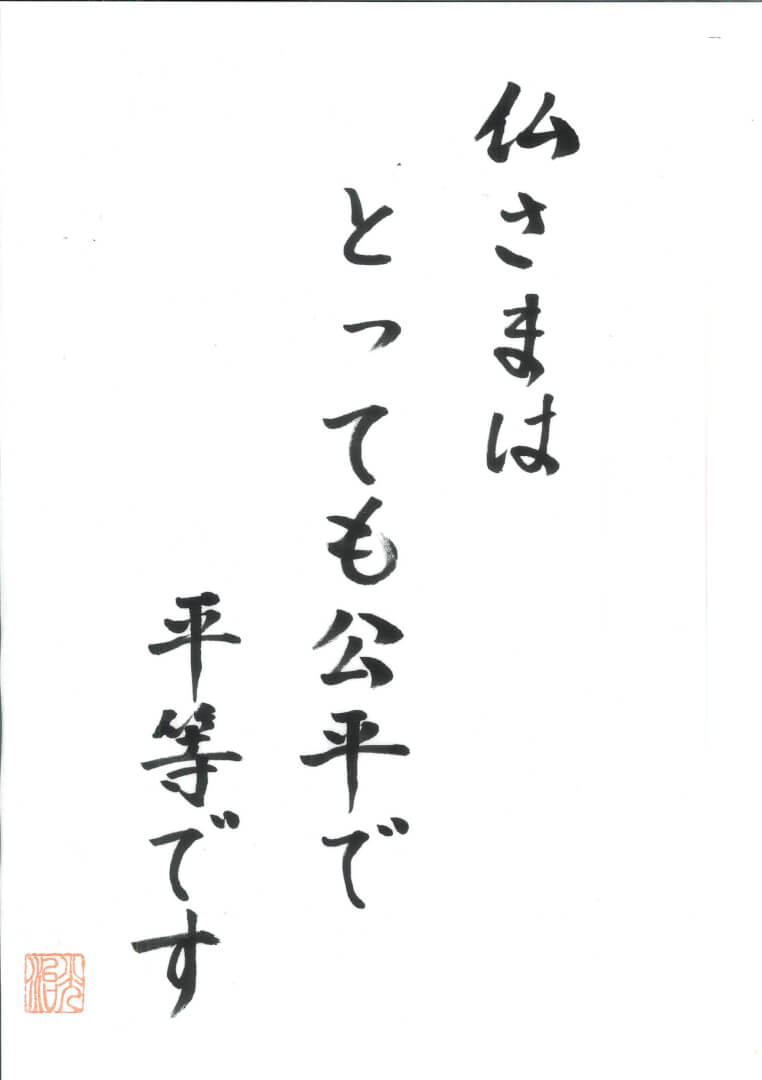 仏さまは
とっても公平で
平等です